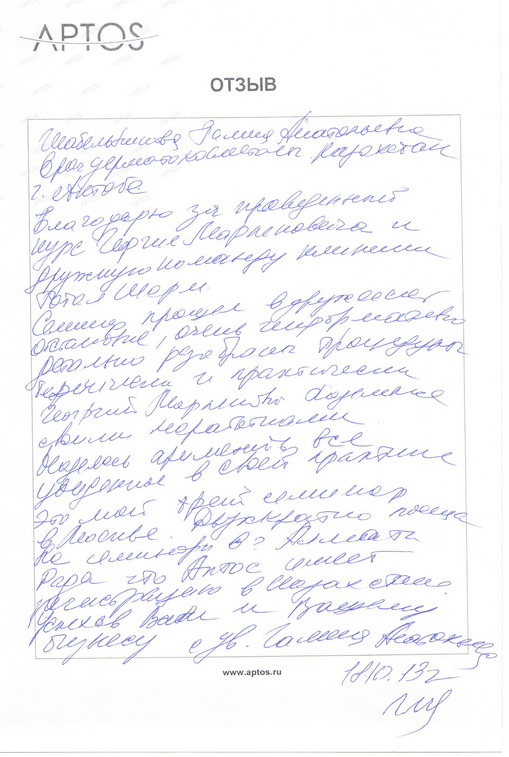 APTOS
ОТЗЫВ
Галия Анатольевна
Врач дерматокосметолог Казахстан
г. Актобе
Благодарю за проведенный
курс Георгия Мартеновича и
дружную команду клиники
Тотал Шарм.
Семинар прошел в дружеской
обстановке, очень информативно
детально разобрали процедуры
теоретически и практически
Георгий
своими наработками
Надеюсь применить все
увиденное в своей практике
Это мой трет семинар
в Москве. Двухкратно посеща
на семинары в г Алматы
Рада что Аптос имеет
регистрацию в Казахстане.
Успехов Вам и Вашему
бизнесу с ув. Галия Анатольевна
www.aptos.ru
18.10.13г